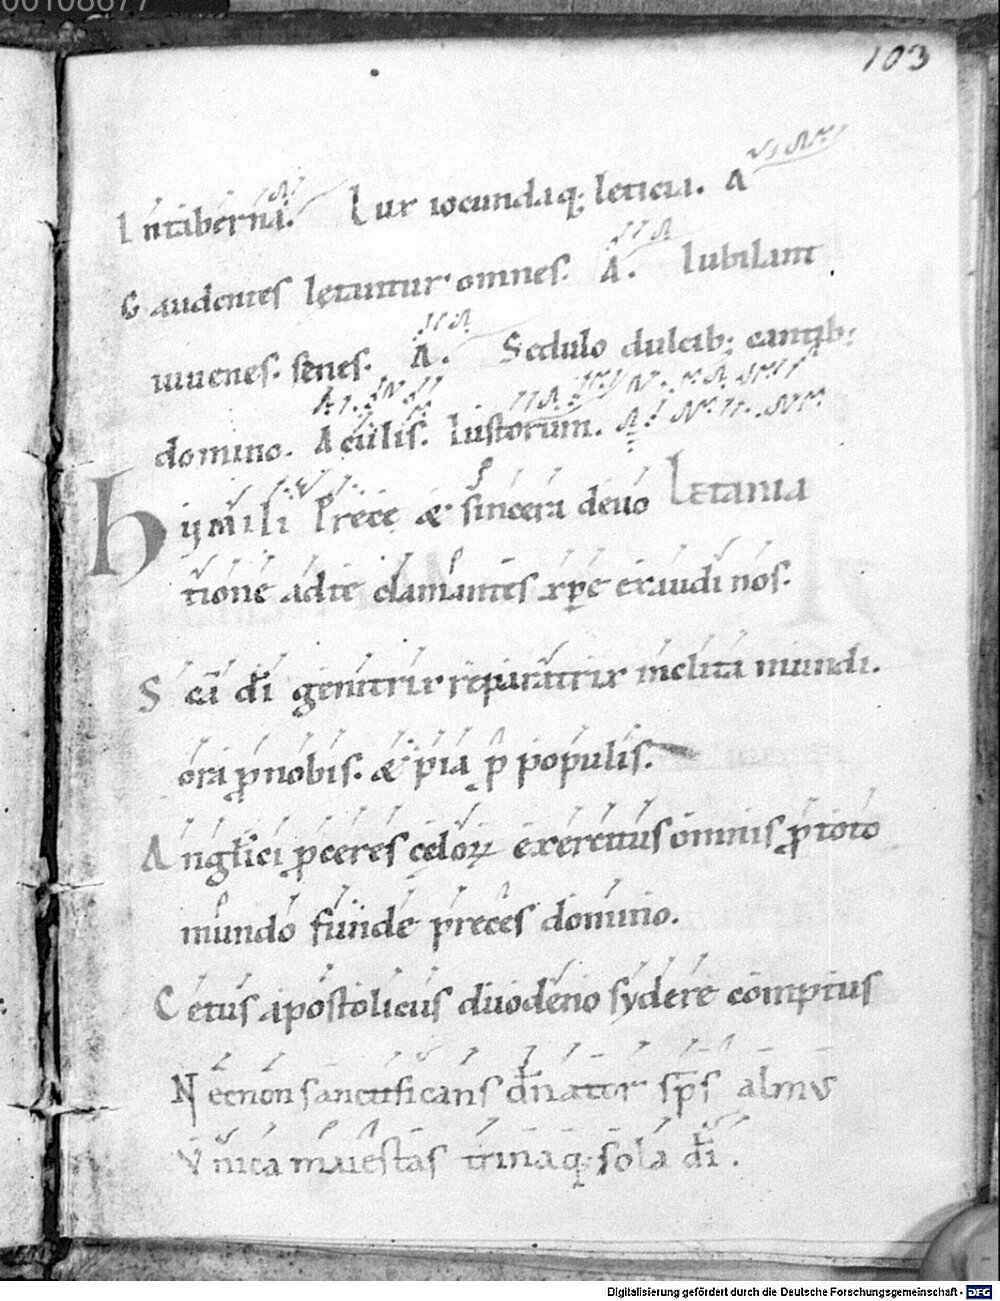 00108677
103
Intaberna. Lux iocundaq; leticia. A
Gaudentes lętantur omnes. A. Iubilant
iuuenes. senes. A. Sedulo dulcib; cantib;
domino. A culis. Iustorum. A
Hymili Prece & sincera deuo Letania
tione ad te clamantes xp̄e exaudi nos.
S cā dī genitrix reparatrix inclita mundi.
ora ꝓ nobis. & pia ꝓ populis.
Anglici ꝓceres celoꝝ exercitus omnis ꝓ toto
mundo funde preces domino.
Cetus apostolicus duodeno sydere comptus
Necnon sanctificans dn̄ator sp̄s almus
Vnica maiestas trinaq; sola dī.
Digitalisierung gefördert durch die Deutsche Forschungsgemeinschaft - DFG